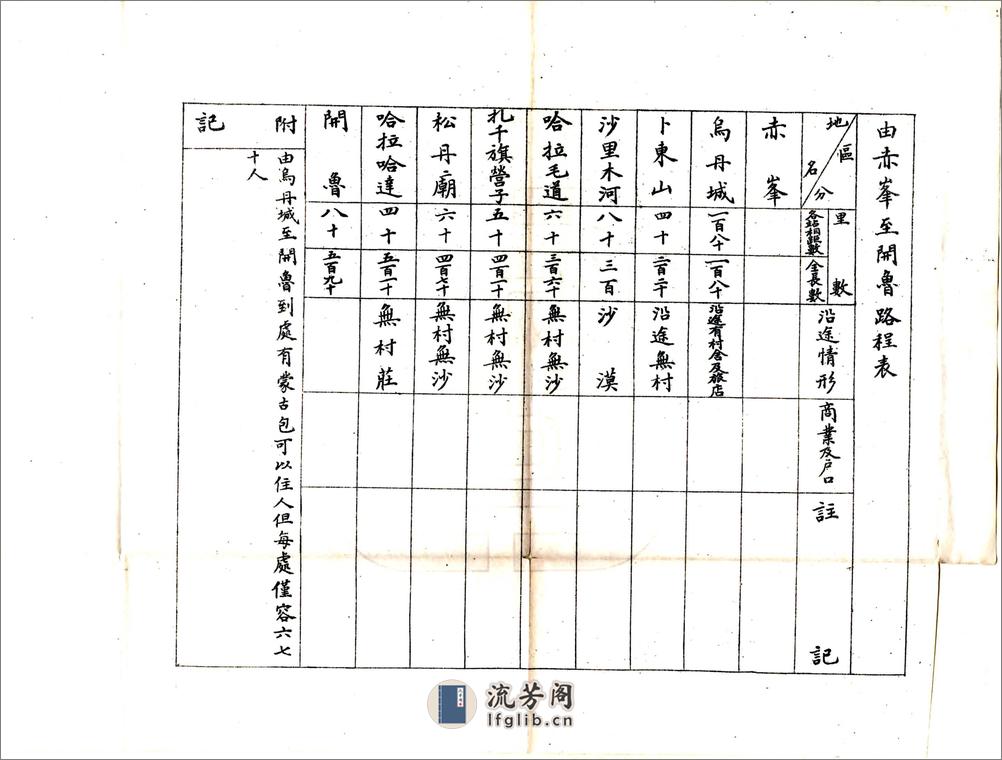 由赤峯至開魯路程表
地名
區分
里數
各站相距數
全長數
沿途情形
商業及戶口
註記
赤峯
烏丹城
一百八十
一百八十
沿途有村舍及旅店
卜東山
四十
二百二十
沿途無村
沙里木河
八十
三百
沙漠
哈拉毛道
六十
三百六十
無村無沙
扎千旗營子
五十
四百一十
無村無沙
松丹廟
六十
四百七十
無村無沙
哈拉哈達
四十
五百一十
無村莊
開魯
八十
五百九十
附記
由烏丹城至開魯到處有蒙古包可以住人但每處僅容六七
十人
流芳阁
lfglib.cn